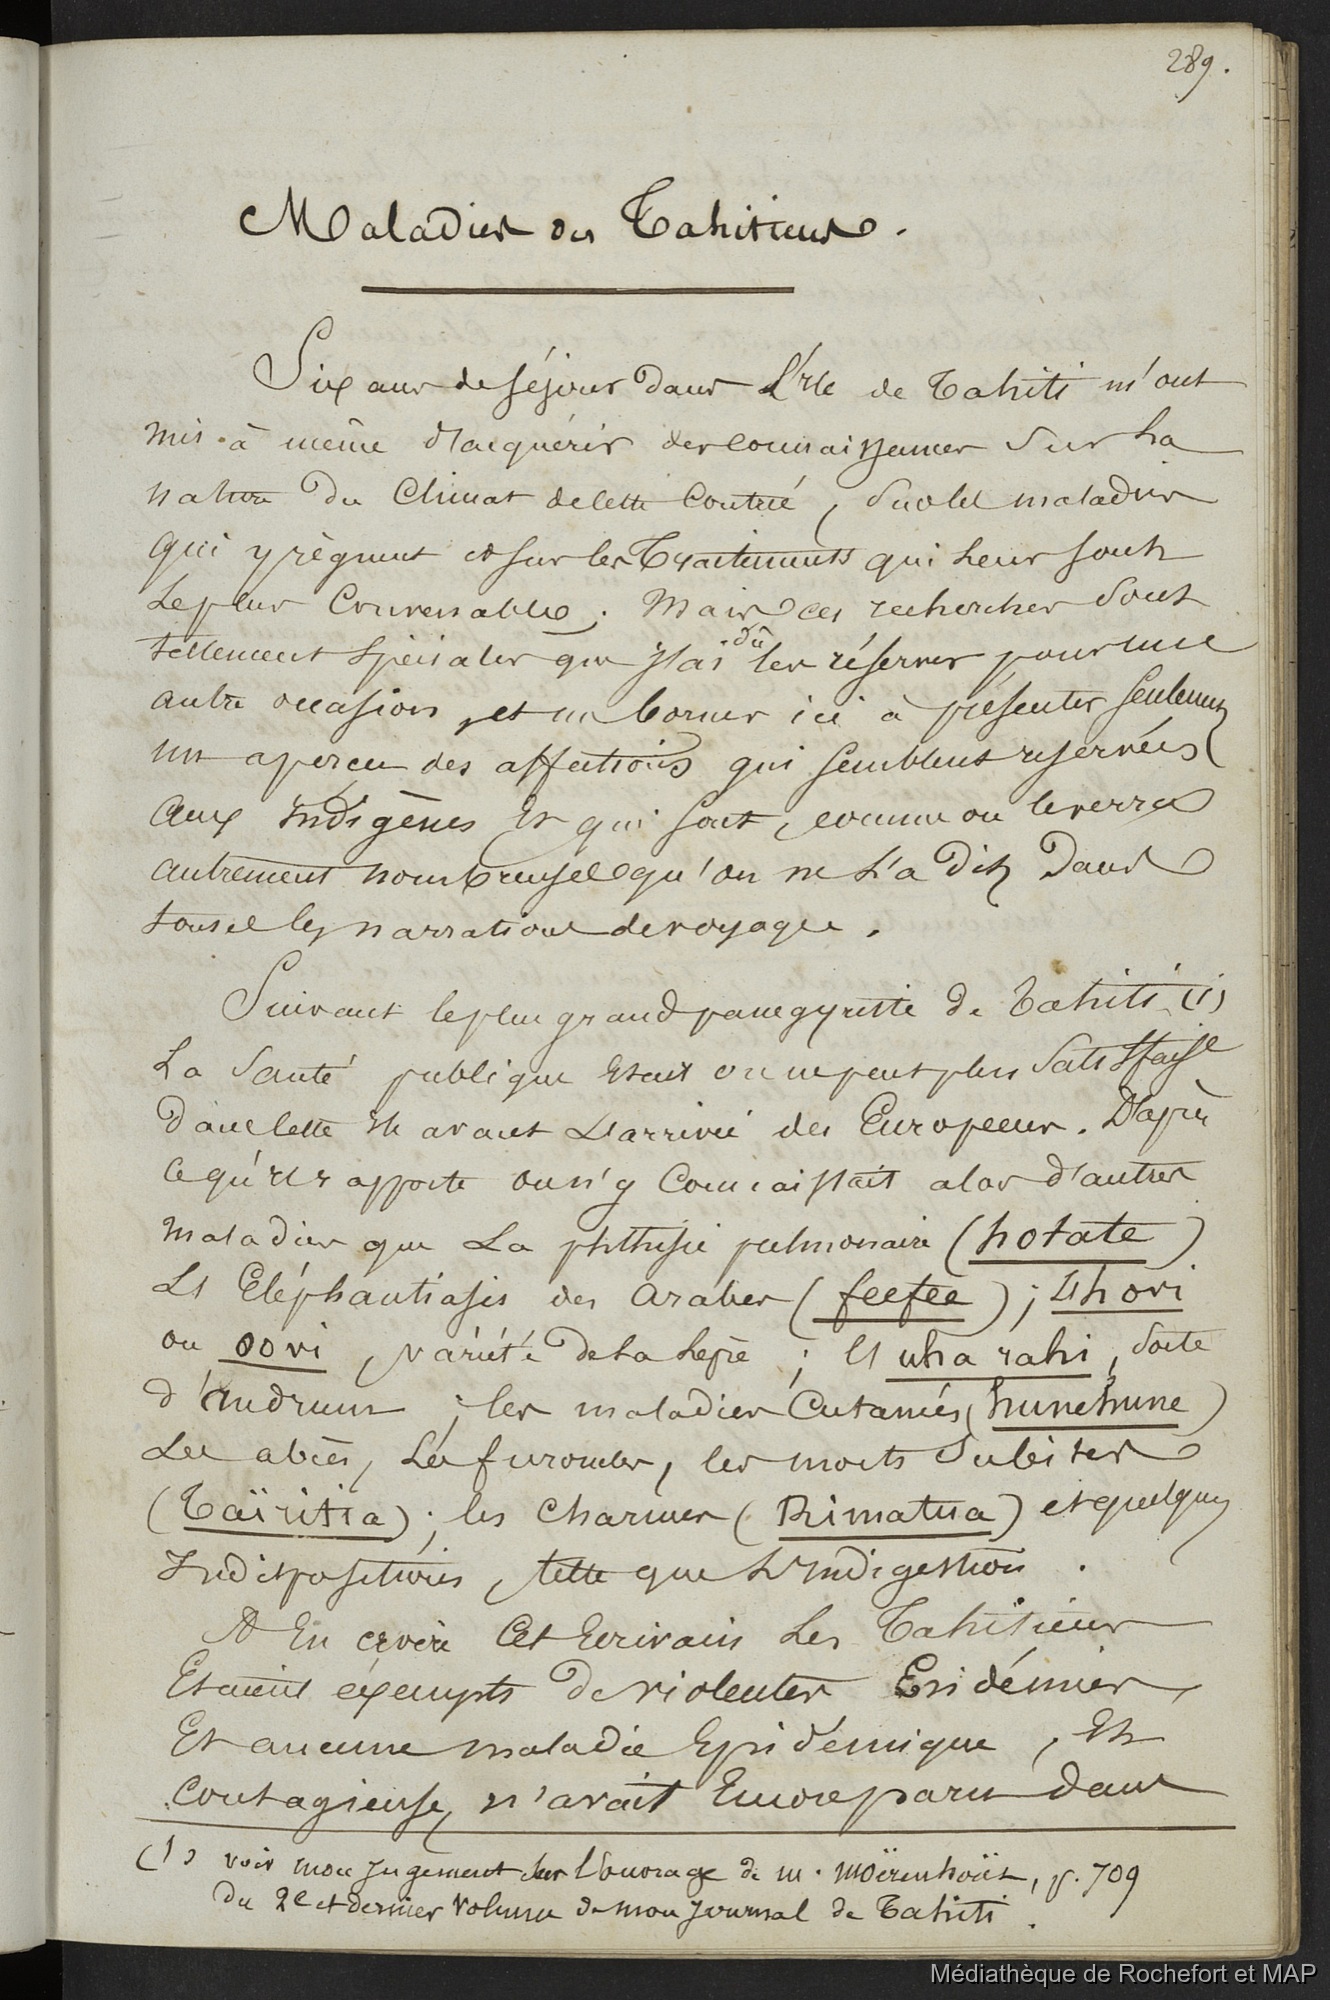 289.
Maladies des Tahitiens.
Six ans de séjour dans l'Ile de Tahiti m'ont
mis à même d'acquérir des connaissances sur la
nature du Climat de cette Contrée, sur les maladies
qui y règnent et sur les Traitements qui leur sont
le plus Convenables. Mais ces recherches sont
tellement spéciales que J'ai dû les réserver pour une
autre occasion, et me borner ici à présenter seulement
un aperçu des affections qui semblent réservées
aux Indigènes et qui sont, comme on le verra
autrement nombreuses qu'on ne l'a dit dans
toutes les narrations de voyage.
Suivant le plus grand panegyriste de Tahiti (1)
La Santé publique était on ne peut plus Satisfaiste
dans cette Ile avant L'arrivée des Européens. D'après
ce qu'il rapporte on n'y Connaissait alors d'autres
maladies que La phthisie pulmonaire (hotate)
L'Eléphantiasis des arabes (feefee); L'hovi
ou oovi, variété de la Lèpre; L'uha rahi, sorte
d'; les maladies Cutanées (hunehune)
Les abcès, Les furoncles, les morts Subites
(Taïritia); les Charmes (Rimatua) et quelques
Indispositions, telle que L'Indigestion.
A En croire Cet Ecrivain Les Tahitiens
Etaient éxempts de violentes Epidémies,
Et aucune maladie Epidémique, Et
Contagieuse, n'avait Encore paru dans
(1) voir mon jugement sur l'ouvrage de m. Möerenhoüt, p. 709
du 2e et dernier volume de mon Journal de Tahiti.
Médiathèque de Rochefort et MAP